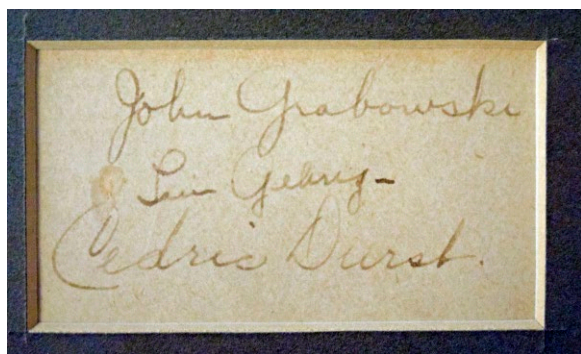 John Grabowski
Lou Gehrig-
Cedric Durst.